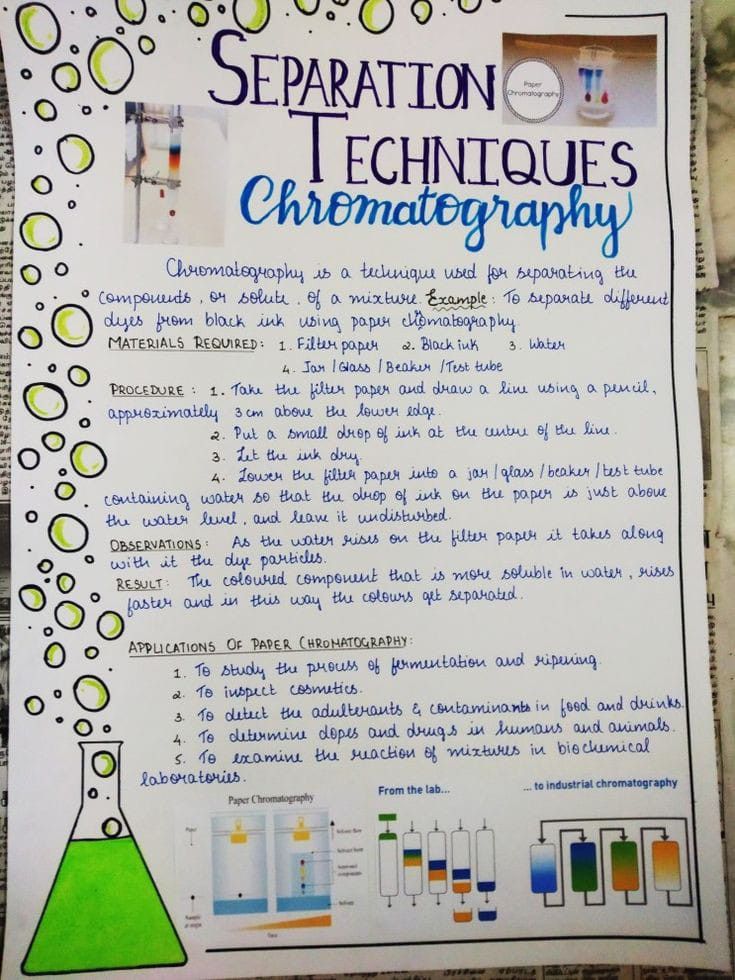 SEPARATION
Paper
Chromatography
TECHNIQUES
Chromatography
Chromatography is a technique used for separating the
components, or solute, of a mixture. Example: To separate different
dyes from black ink using paper chromatography.
MATERIALS REQUIRED: 1. Filter paper 2. Black ink 3. Water
4. Jar/Glass/Beaker/Test tube
PROCEDURE: 1. Take the filter paper and draw a line using a pencil,
approximately 3 cm above the lower edge.
2. Put a small drop of ink at the centre of the line.
3. Let the ink dry.
4. Lower the filter paper into a jar/glass/beaker/test tube
containing water so that the drop of ink on the paper is just above
the water level, and leave it undisturbed.
OBSERVATIONS: As the water rises on the filter paper it takes along
with it the dye particles.
RESULT: The coloured component that is more soluble in water, rises
faster and in this way the colours get separated.
APPLICATIONS OF PAPER CHROMATOGRAPHY:
1. To study the process of fermentation and ripening.
2. To inspect cosmetics.
3. To detect the adulterants & contaminants in food and drinks.
4. To determine dopes and drugs in humans and animals.
5. To examine the reaction of mixtures in biochemical
laboratories.
Paper Chromatography
Paper
Sample
at origin
Solvent flow
Solvent front
Separated
components
Solvent
Time
From the lab...
... to industrial chromatography